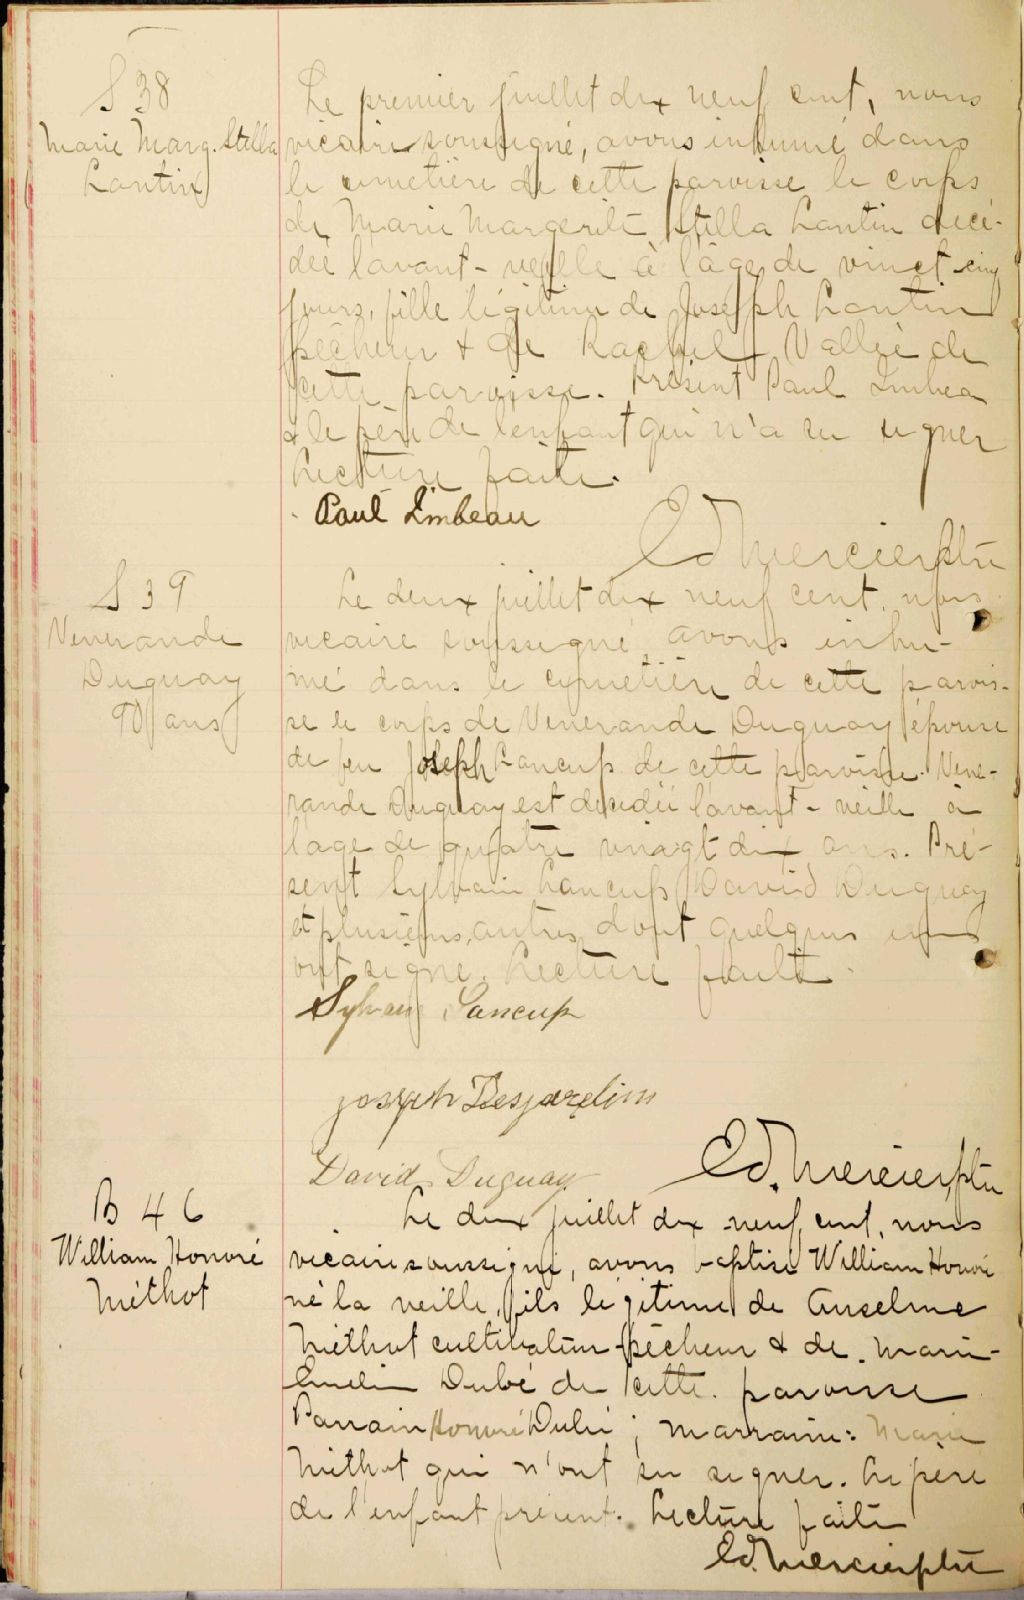 S 38
Marie Marg. Stella
Lantin
Le premier juillet dix neuf cent, nous
vicaire soussigné, avons inhumé dans
le cimetière de cette paroisse le corps
de Marie Margerite Stella Lantin décé-
dée l'avant-veille à l'âge de vinct-cinq
jours, fille légitime de Joseph Lantin
pêcheur & de Rachel Vallée de
cette paroisse. Présent Paul Imbea
& le père de l'enfant qui n'a su signer
Lecture faite.
Paul Imbeau
Ed Mercier ptre
S 39
Venerande
Duguay
90 ans
Le deux juillet dix neuf cent, nous
vicaire soussigné, avons inhu-
mé dans le cimetière de cette parois-
se le corps de Venerande Duguay épouse
de feu Joseph Lancup de cette paroisse. Vene-
rande Duguay est décédée l'avant-veille à
l'age de quatre vinagt dix ans. Pré-
sent Sylvain Lancup David Duguay
et plusieurs autres dont quelques uns
ont signé. Lecture faite.
Sylvain Lancup
joseph Desjardins
David Duguay
Ed. Mercier, ptre
B 46
William Honoré
Méthot
Le deux juillet dix neuf cent, nous
vicaire soussigné, avons baptisé William Honoré
né la veille, fils légitime de Anselme
Méthot cultivateur-pêcheur & de Marie-
Emelie Dubé de cette paroisse
Parrain Honoré Dubé; marraine: Marie
Méthot qui n'ont su signer. Le père
de l'enfant présent. Lecture faite
Ed. Mercier ptre